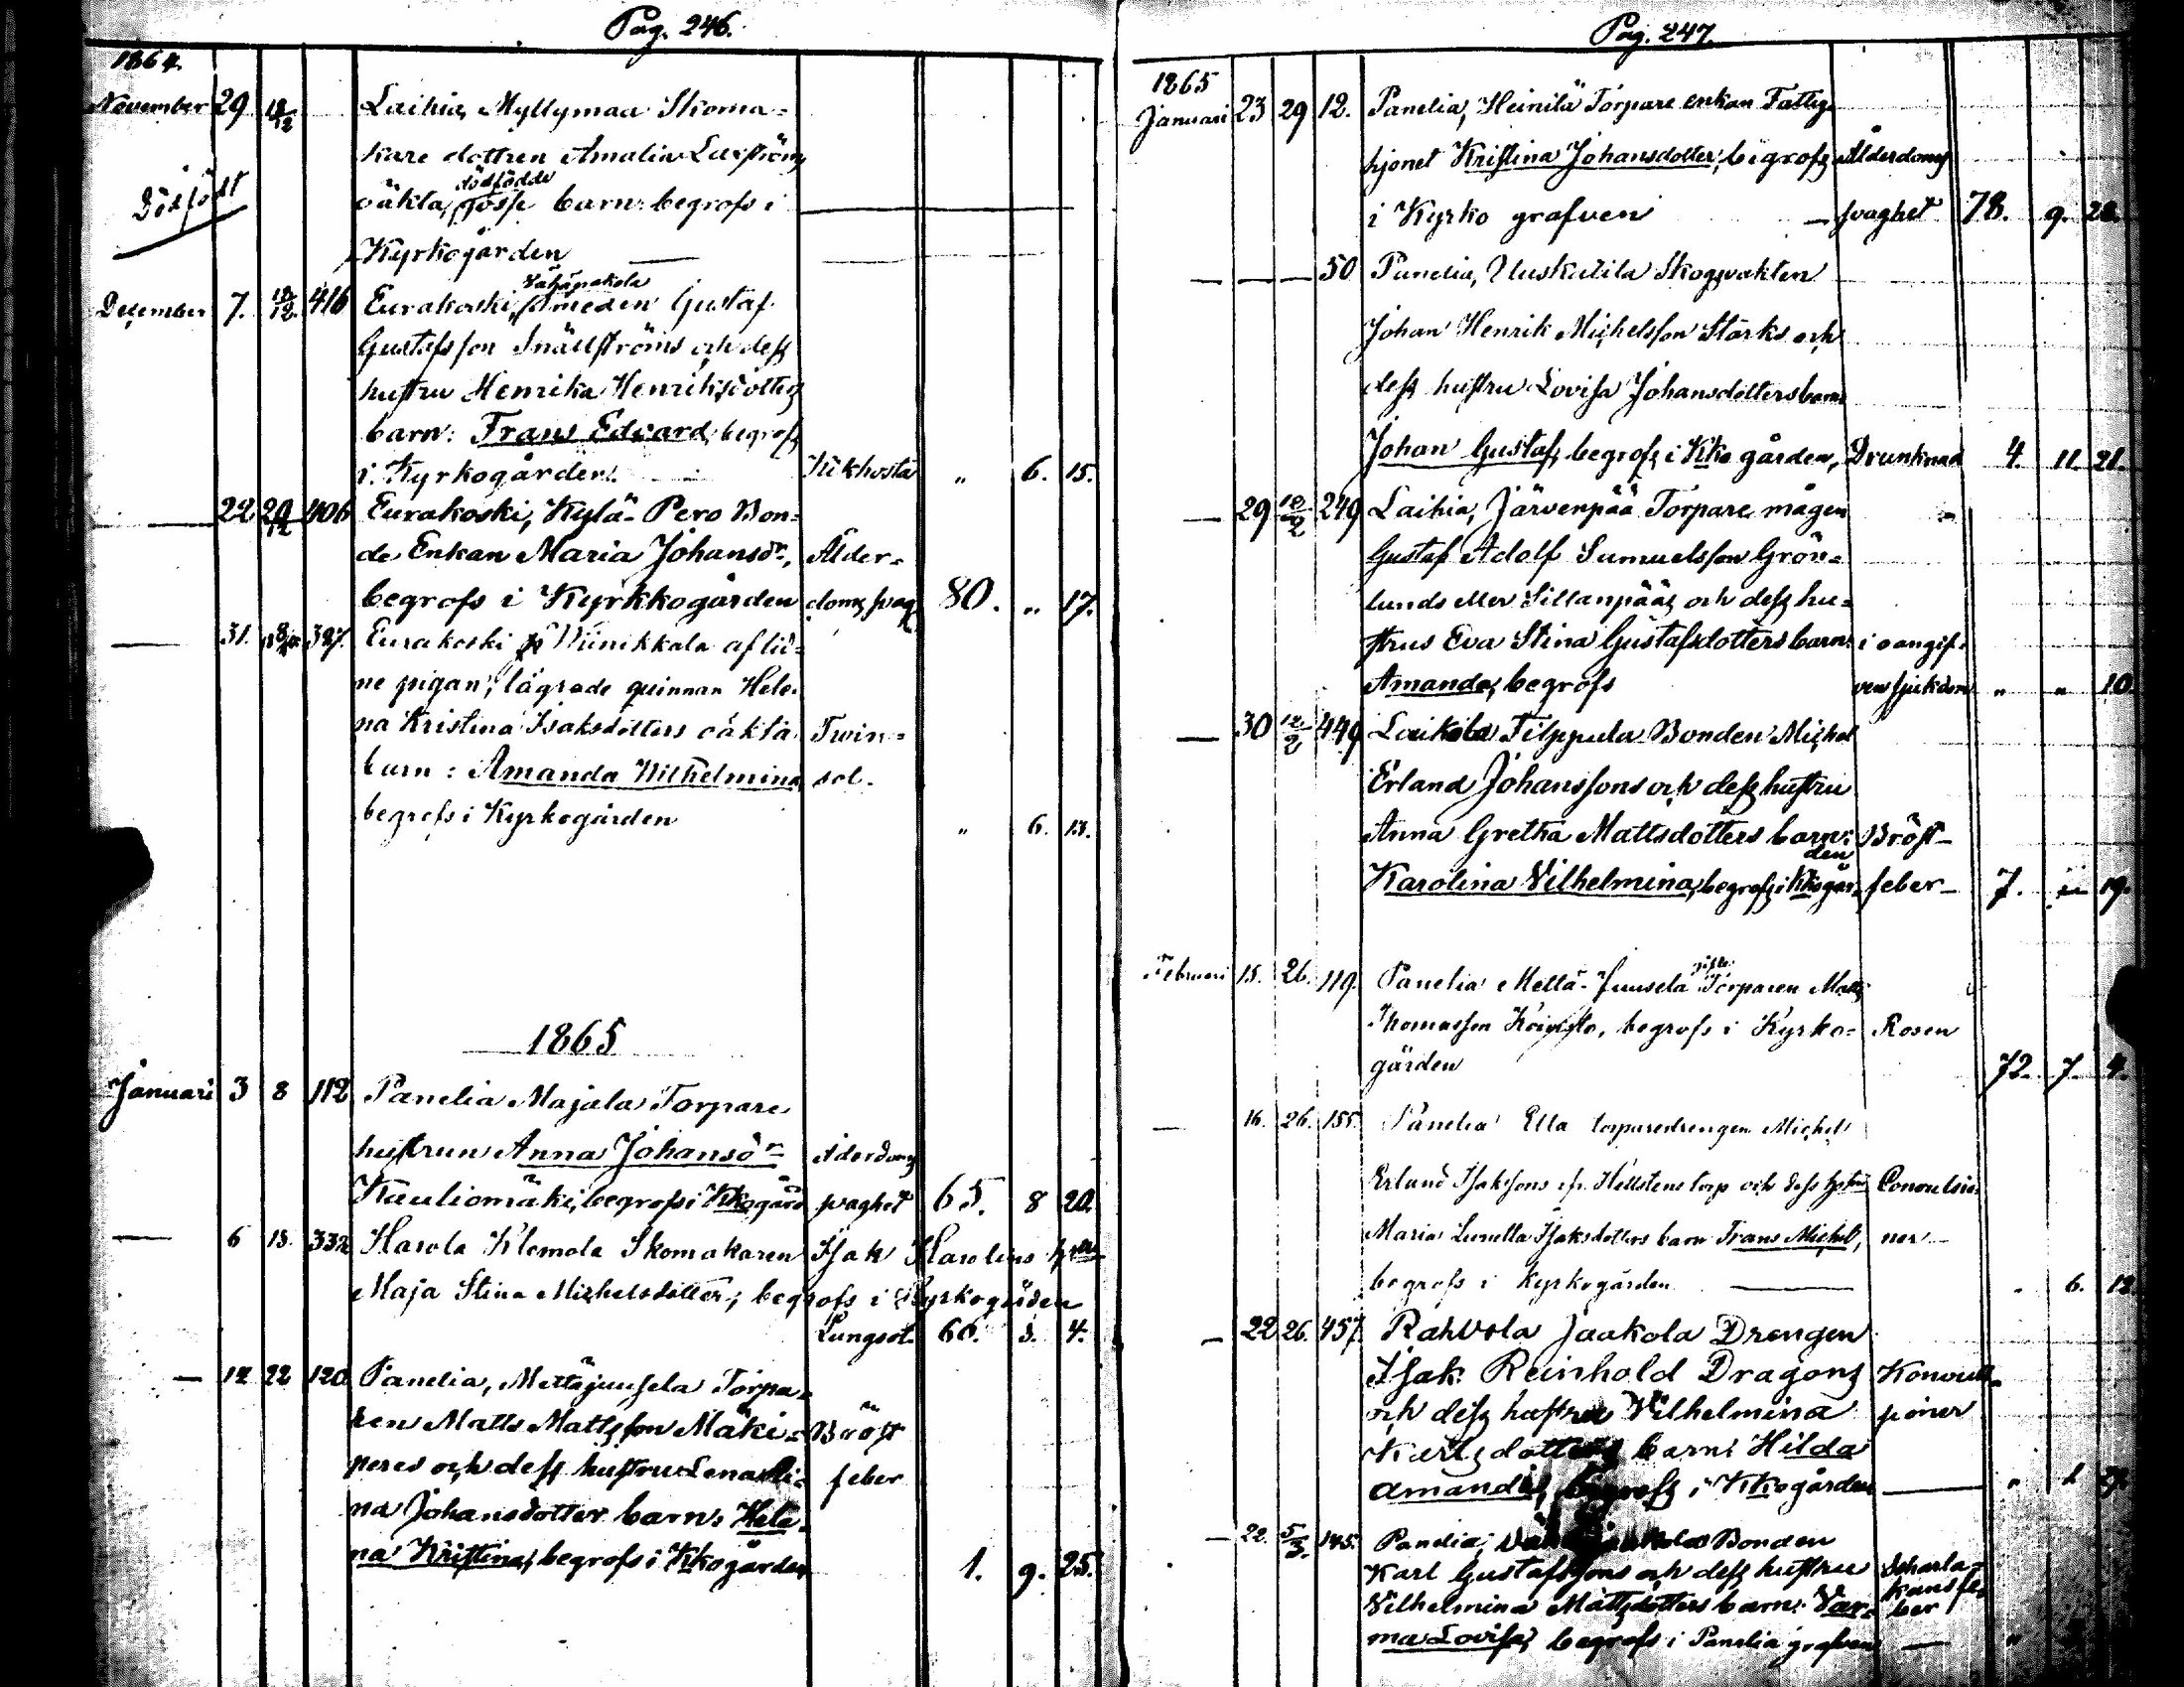 Pag. 246.
1864.
November 29 18/12 Laihia, Myllymaa Skoma-
kare dottren Amalia
dödfödde
Dödfödt oäkta, barn: begrofs i
Kyrkogården
Vähäpakola
December 7. 18/12. 416 Eurakoski, Smeden Gustaf
Gustafsson Snällströms och dess
hustru Henrika Henriksdotters
barn: Frans Edvard, begrofs
i Kyrkogården. Kikhosta " 6. 15.
22 406 Eurakoski, Kylä-Pero Bon-
de Enkan Maria Johansdr, Ålder-
begrofs i Kyrkkogården doms svag 80. " 17.
31. 387. Eurakoski Viinikkala aflid-
ne pigan, lägrade quinnan Hele-
na Kristina Isaksdotters oäkta Twin-
barn: Amanda Wilhelmina sot.
begrofs i Kyrkogården " 6. 13.
1865
Januari 3 8 112 Panelia Majala Torpare
hustrun Anna Johansdr Ålderdoms
Kauliomäki, begrofs i Kkogård svaghet 65. 8 20.
6 15. 332 Harola Klemola Skomakaren Isak Harolins
Maja Stina Michelsdotter, begrofs i Kyrkogården
Lungsot. 60. 3. 4.
12 22 120 Panelia, Mettäjuusela Torpa-
ren Matts Mattsson Mäki- Bröst
peres och dess hustru Lena Sti- feber
na Johansdotter barn: Hele-
na Kristina, begrofs i Kkogården 1. 9. 25.
Pag. 247.
1865
Januari 23 29 12. Panelia, Heinilä Torpare enkan Fattig-
hjonet Kristina Johansdotter, begrofs Ålderdoms
i Kyrko grafven svaghet 78. 9. 28.
50 Panelia, Uuskutila Skogsvakten
Johan Henrik Michelsson Starks och
dess hustru Lovisa Johansdotters barn
Johan Gustaf, begrofs i Kko gården, Drunknad 4. 11. 21.
29 12/2 249 Laihia, Järvenpää Torpare mågen
Gustaf Adolf Samuelsson Grön-
lunds eller Sillanpääs och dess hu-
strus Eva Stina Gustafsdotters barn: i oangif-
Amanda, begrofs ven sjukdom " " 10.
30 12/2 449 Laikola Filppula Bonden Michel
Erland Johanssons och dess hustru
Anna Gretha Mattsdotters barn: Bröst-
den
Karolina Vilhelmina, begrofs i Kkogår- feber 7. " 19.
Februari 15. 26. 119. Panelia Mettä-Juusela Torparen Matts
Thomasson Koivisto, begrofs i Kyrko- Rosen
gården 72. 7. 4.
16. 26. 155. Panelia Ella torparedrengen Michel
Erland Isakssons fr. Hellstens torp och dess hustru Convulsio-
Maria Lunetta Isaksdotters barn Frans Michel, ner
begrofs i Kyrkogården " 6. 12.
22 26. 457 Rahvola Jaakola Drengen
Isak Reinhold Dragons Konvul-
och dess hustru Vilhelmina sioner
Karlsdotters barn: Hilda
Amanda, begrofs i Kkogården "
22. 5/3. 145. Panelia, Bonden
Karl Gustafssons och dess hustru Scharla-
kansfe-
Vilhelmina Mattsdotters barn: Var- ber
ma Lovisa, begrofs i Panelia grafven "